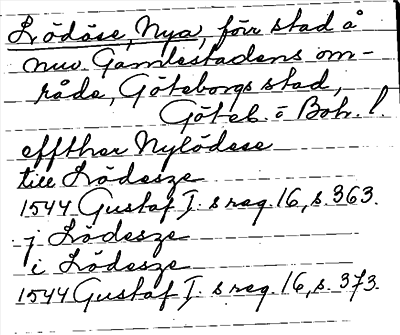 Lödöse, Nya, förr stad å
nuv. Gamlestadens om-
råde, Göteborgs stad,
Göteb. o Boh. l.
effther Nylödese
till Lödesze
1544 Gustaf I:s reg. 16, s. 363.
j Lödesze
i Lödesze
1544 Gustaf I:s reg. 16, s. 373.